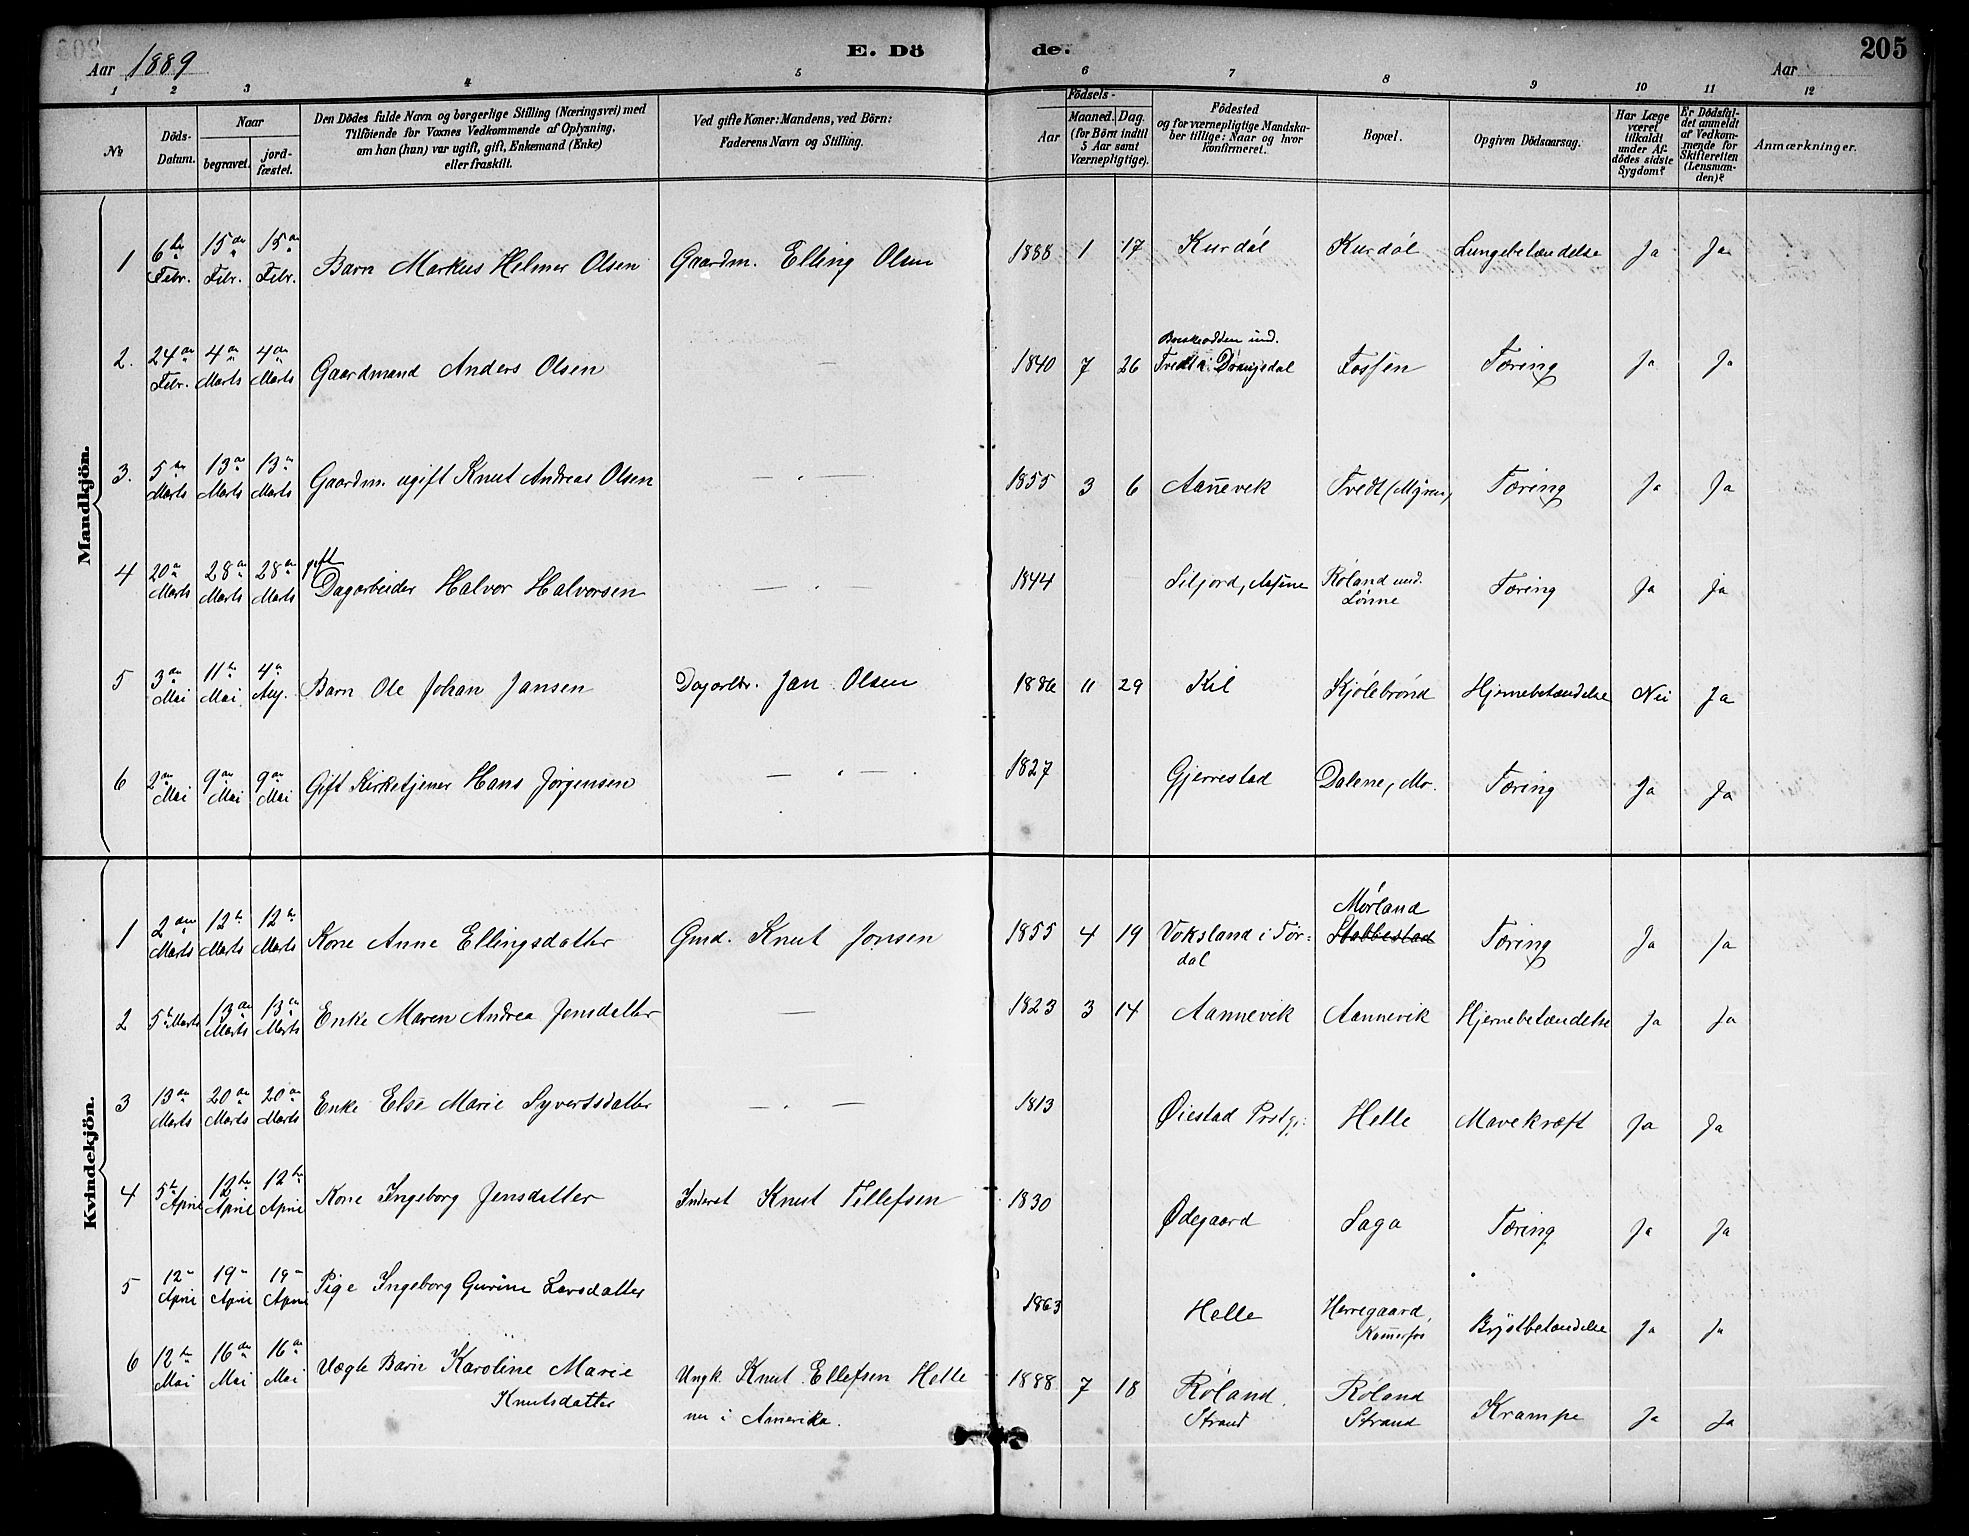 Aar 1889
E. Dö de.
Aar
205
1 2 3 4 5 6 7 8 9 10 11 12
№
Döds-Datum.
Naar
begravet.
jord-fæstet.
Den Dödes fulde Navn og borgerlige Stilling (Næringsvei) med
Tilföiende for Voxnes Vedkommende af Oplysning,
om han (hun) var ugift, gift, Enkemand (Enke)
eller fraskilt.
Ved gifte Koner: Mandens, ved Börn:
Faderens Navn og Stilling.
Födsels-
Aar
Maaned. Dag.
(for Börn indtil
5 Aar samt
Værnepligtige).
Födested
og for værnepligtige Mandska-
ber tillige: Naar og hvor
konfirmeret.
Bopæl.
Opgiven Dödsaarsag.
Har Læge
været
tilkaldt
under Af-
dödes sidste
Sygdom?
Er Dödsfal-
det anmeldt
af Vedkom-
mende for
Skifteretten
(Lensman-
den)?
Anmærkninger.
Mandkjön.
1 6te Febr. 15de Febr. 15de Febr. Barn Markus Helmer Olsen Gaardm. Elling Olsen 1888 1 17 Kurdøl Kurdøl Lungebetændelse Ja Ja
2. 24de Febr. 4de Marts 4de Marts Gaardmand Anders Olsen — 1840 7 26 und. Tvedt i Drangedal Fossen Tæring Ja Ja
3. 5te Marts 13de Marts 13de Marts Gaardm. ugift Knut Andreas Olsen — " — 1855 3 6 Aanevek Tvedt (Myren) Tæring Ja Ja
4 20de Marts 28de Marts 28de Marts gift Dagarbeider Halvor Halvorsen — " — 1844 Siljord, Røland und. Lønne Tæring Ja Ja
5 3de Mai 11te Mai 4de Aug. Barn Ole Johan Jansen Dagarbr. Jan Olsen 1886 11 29 Kil Kjølebrønd Hjernebetændelse Nei Ja
6 2den Mai 9de Mai 9de Mai Gift Kirketjener Hans Jørgensen — " — 1827 Gjerrestad Dalene, Mo. Tæring Ja Ja
Kvindekjön.
1 2den Marts 12te Marts 12te Marts Kone Anne Ellingsdatter Gmd. Knut Jonsen 1855 4 19 Voksland i Tørdal Mørland Stabbestad Tæring Ja Ja
2 5te Marts 13de Marts 13de Marts Enke Maren Andrea Jensdatter — 1823 3 14 Aannevik Aannevik Hjernebetændelse Ja Ja
3 13de Marts 20de Marts 20de Marts Enke Else Marie Syvertsdatter — " — 1813 Øiestad Prstgj. Helle Mavekræft Ja Ja
4 5te April 12te April 12te April Kone Ingeborg Jensdatter Inderst Knut Tellefsen 1830 Ødegaard Saga Tæring Ja Ja
5 12te April 19de April 19de April Pige Ingeborg Gurine Larsdatter 1863 Helle Herregaard, Kammerfos Brystbetændelse Ja Ja
6 12te Mai 16de Mai 16de Mai Uægte Barn Karoline Marie Knutsdatter Ungk. Knut Ellefsen Helle nu i Amerika. 1888 7 18 Røland Strand Røland Strand Krampe Ja Ja